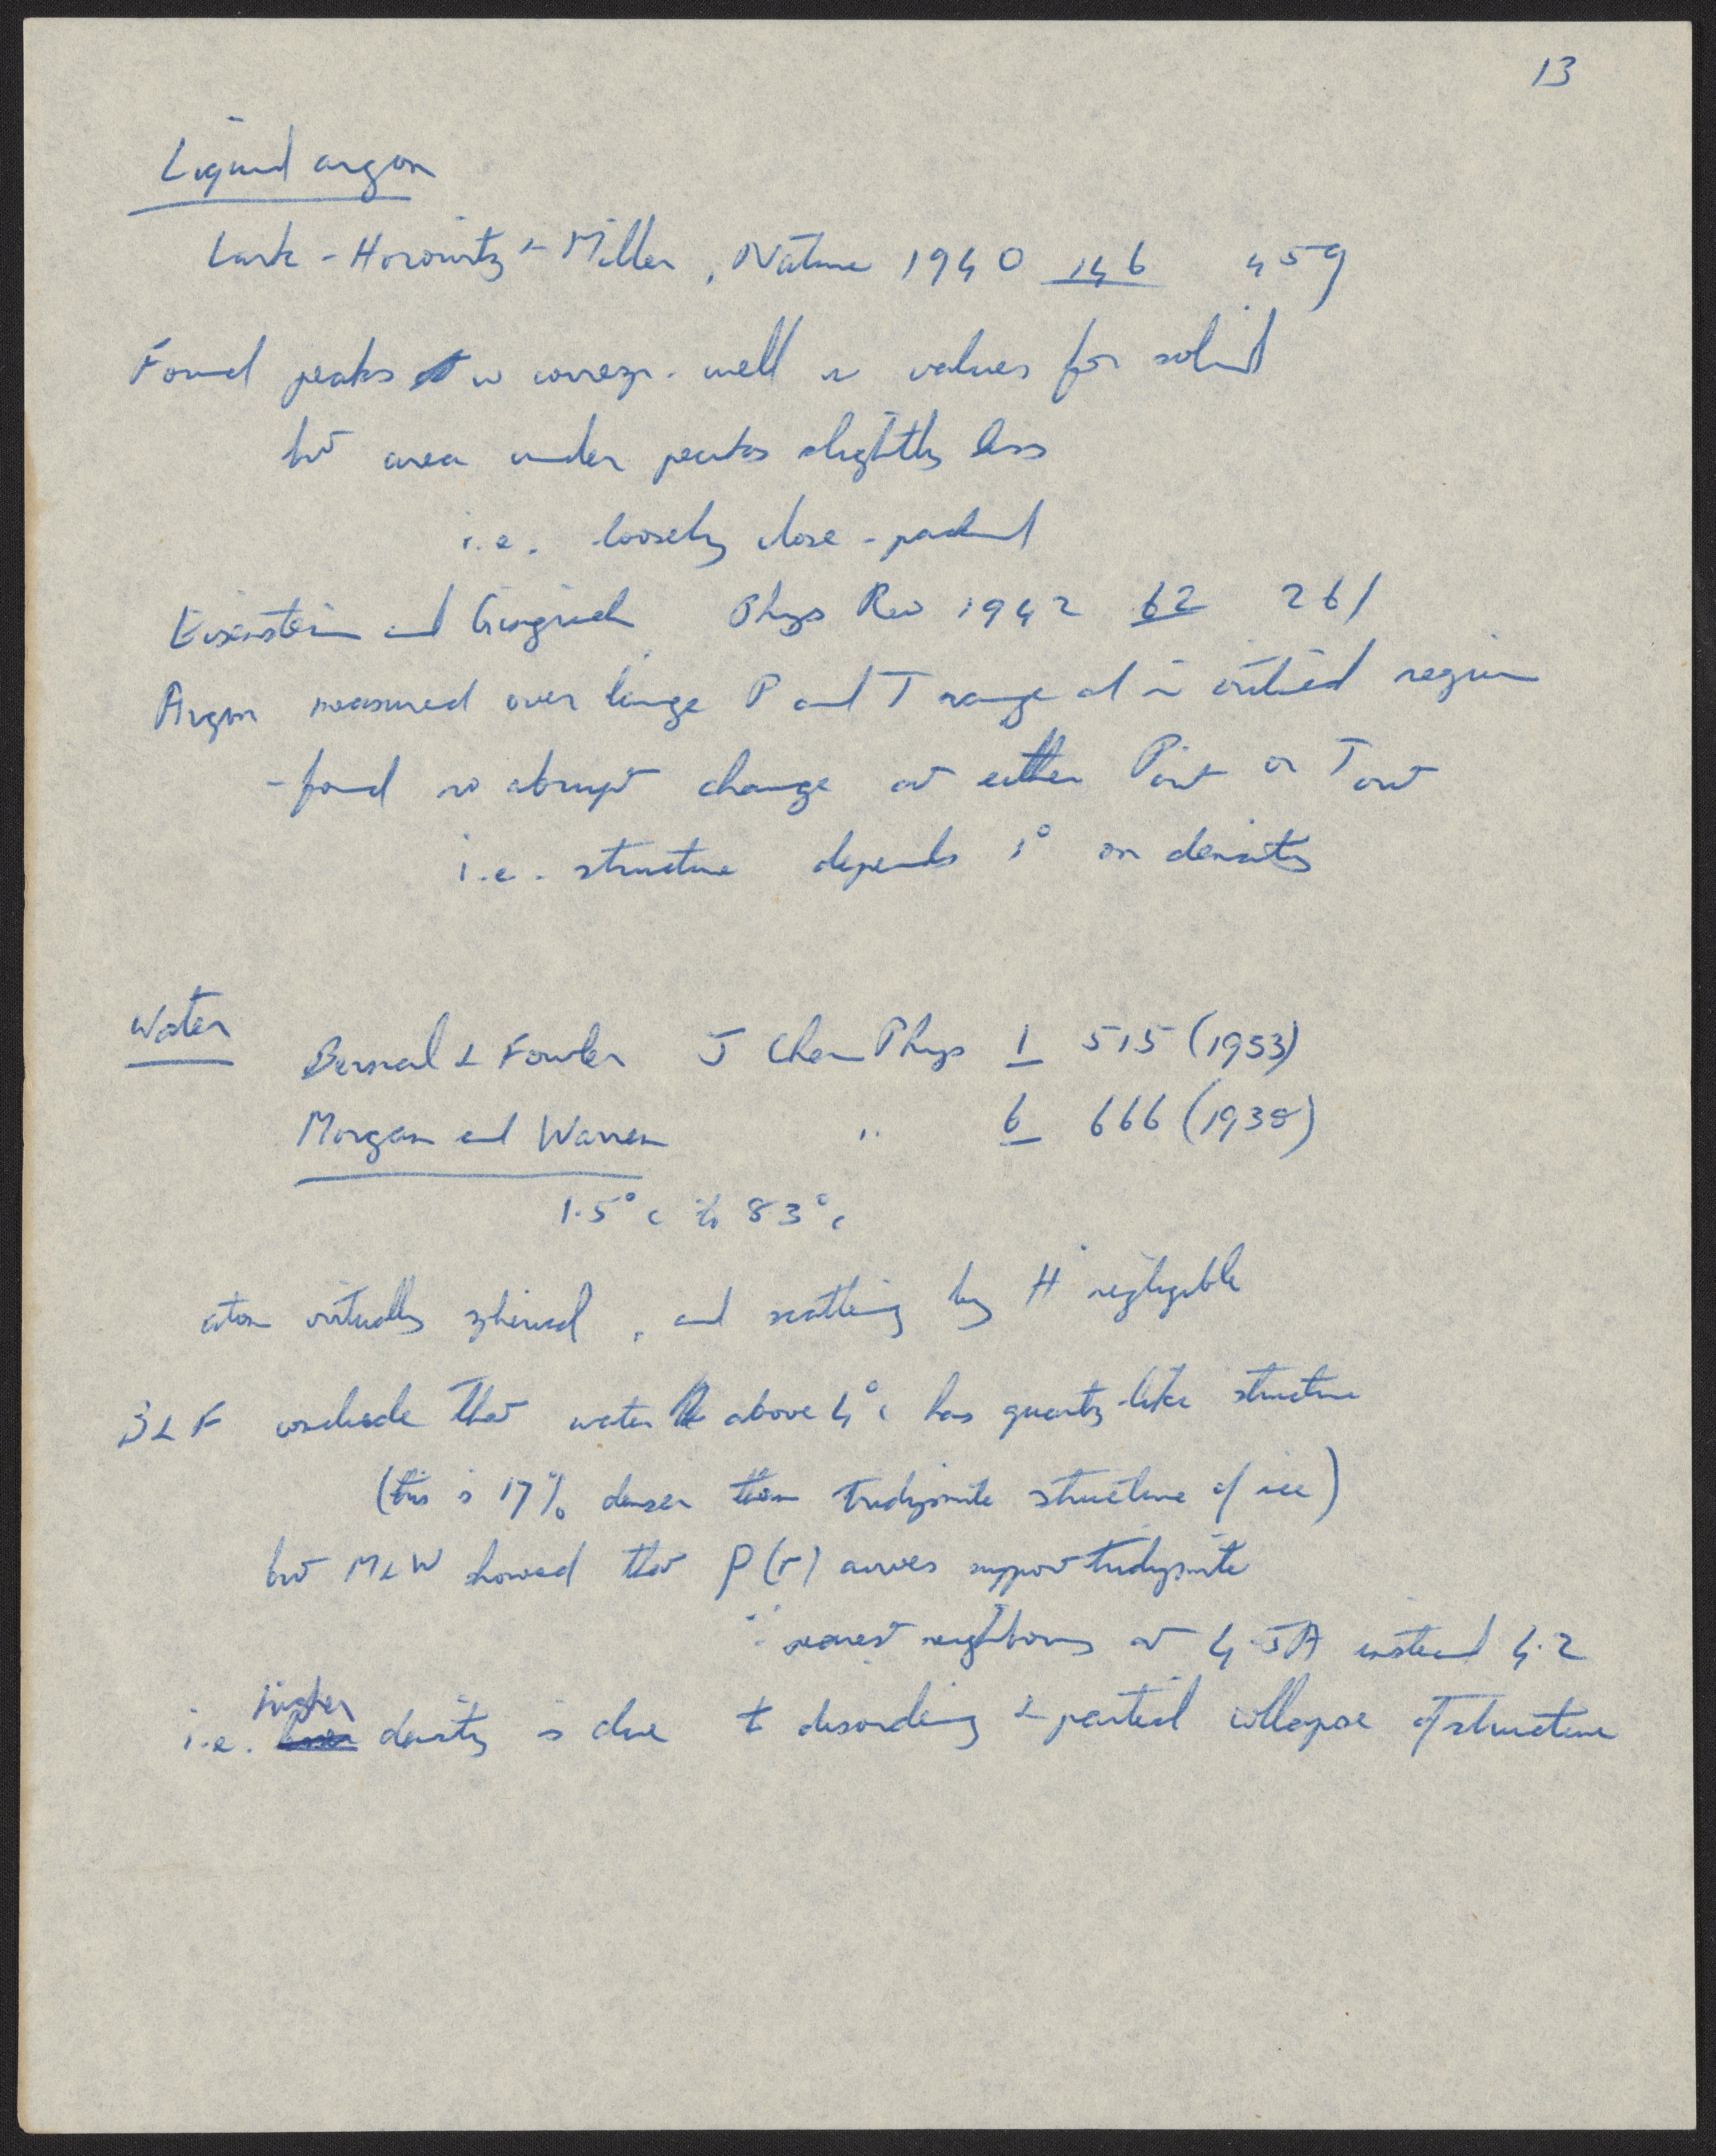 13
Liquid argon
Lark-Horowitz & Miller, Nature 1940 146 459
Found peaks w corresp. well w values for solid
but area under peaks slightly less
i.e. loosely close-packed
Eisenstein and Gingrich Phys Rev 1942 62 261
Argon measured over large P and T range and in critical region
- found no abrupt change at either Pcrit or Tcrit
i.e. structure depends 1° on density
Water
Bernal & Fowler J Chem Phys 1 515 (1933)
Morgan and Warren " 6 666 (1938)
1.5°C to 83°C
atom virtually spherical, and scattering by H negligible
B & F conclude that water above 4°C has quartz-like structure
(this is 17% denser than tridymite structure of ice)
but M & W showed that ρ(r) curves support tridymite
∵ nearest neighbours at 4.5A instead 4.2
i.e. higher density is due to disordering & partial collapse of structure